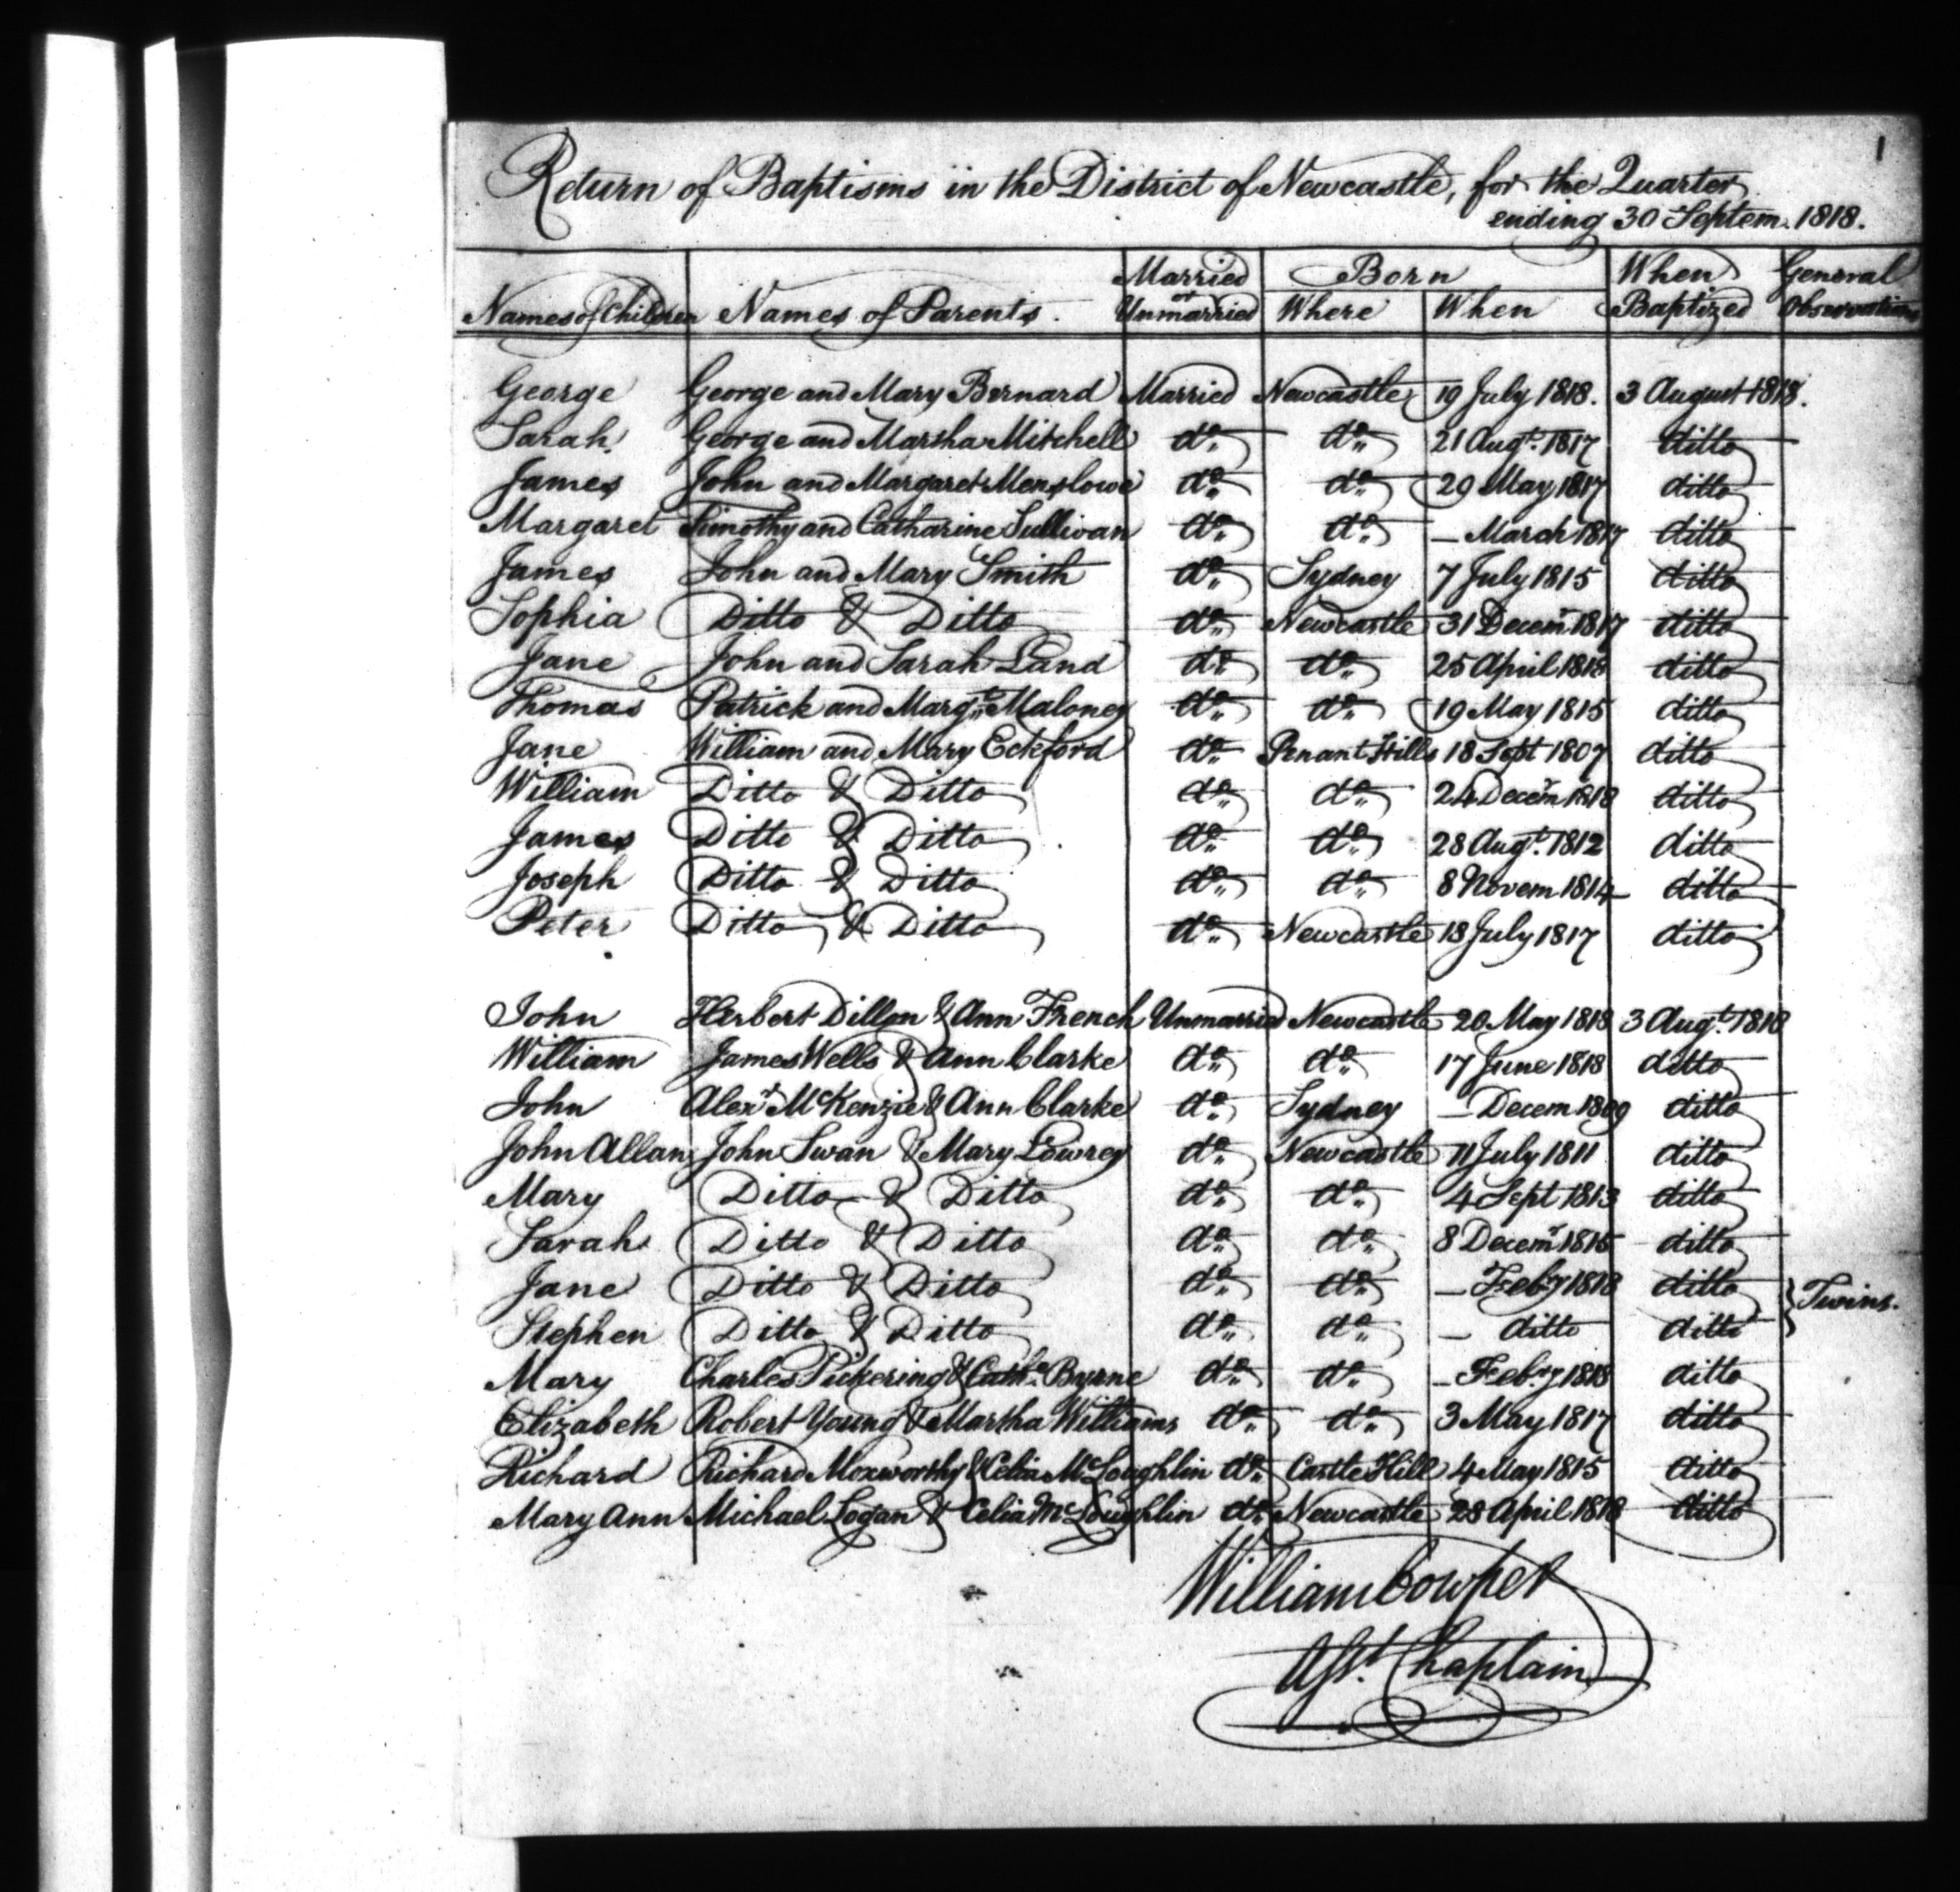 1
Return of Baptisms in the District of Newcastle, for the Quarter
ending 30 Septem. 1818.
Names of Children Names of Parents. Married or Unmarried Born Where When When Baptized General Observations
George George and Mary Bernard Married Newcastle 19 July 1818. 3 August 1818.
Sarah George and Martha Mitchell do. do. 21 Augt. 1817 ditto
James John and Margaret Menslowe do. do. 29 May 1817 ditto
Margaret Timothy and Catharine Sullivan do. do. — March 1817 ditto
James John and Mary Smith do. Sydney 7 July 1815 ditto
Sophia Ditto & Ditto do. Newcastle 31 Decemr. 1817 ditto
Jane John and Sarah Land do. do. 25 April 1818 ditto
Thomas Patrick and Margt. Maloney do. do. 19 May 1815 ditto
Jane William and Mary Eckford do. Penant Hills 18 Sept 1807 ditto
William Ditto & Ditto do. do. 24 Decemr ditto
James Ditto & Ditto do. do. 28 Augt. 1812 ditto
Joseph Ditto & Ditto do. do. 8 Novem 1814 ditto
Peter Ditto & Ditto do. Newcastle 18 July 1817 ditto
John Herbert Dillon & Ann French Unmarried Newcastle 20 May 1818 3 Augt. 1818
William James Wells & Ann Clarke do. do. 17 June 1818 ditto
John Alexr. McKenzie & Ann Clarke do. Sydney — Decem 1809 ditto
John Allan John Swan & Mary Lowrey do. Newcastle 11 July 1811 ditto
Mary Ditto & Ditto do. do. 4 Sept 1813 ditto
Sarah Ditto & Ditto do. do. 8 Decemr 1815 ditto
Jane Ditto & Ditto do. do. — Feby 1818 ditto } Twins.
Stephen Ditto & Ditto do. do. — ditto ditto
Mary Charles Pickering & Cathe. Byrne do. do. — Feby 1818 ditto
Elizabeth Robert Young & Martha Williams do. do. 3 May 1817 ditto
Richard Richard Moxworthy & Celia McLoughlin do. Castle Hill 4 May 1815 ditto
Mary Ann Michael Logan & Celia McLoughlin do. Newcastle 28 April 1818 ditto
William Cowper
Asst. Chaplain